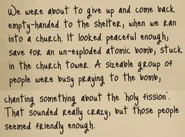 We were about to give up and come back
empty-handed to the shelter, when we ran
into a church. It looked peaceful enough,
save for an un-exploded atomic bomb, stuck
in the church tower. A sizeable group of
people were busy praying to the bomb,
chanting something about the 'holy fission'.
That sounded really crazy, but those people
seemed friendly enough.